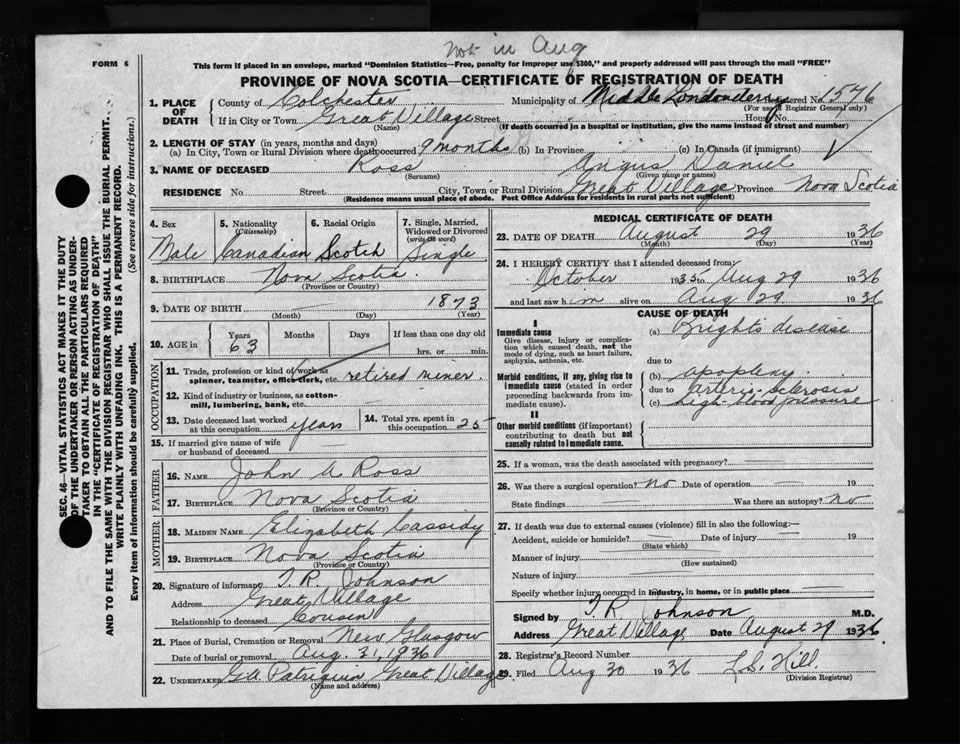 not in Aug
FORM 6
This form if placed in an envelope, marked "Dominion Statistics—Free, penalty for improper use $300," and properly addressed will pass through the mail "FREE"
PROVINCE OF NOVA SCOTIA—CERTIFICATE OF REGISTRATION OF DEATH
1. PLACE OF DEATH
County of Colchester Municipality of Middle Londonderry Registered No. 1576
(For use of Registrar General only)
If in City or Town Great Village Street House No.
(Name) (If death occurred in a hospital or institution, give the name instead of street and number)
2. LENGTH OF STAY (in years, months and days)
(a) In City, Town or Rural Division where death occurred 9 months (b) In Province (c) In Canada (if immigrant)
3. NAME OF DECEASED Ross Angus Daniel
(Surname) (Given name or names)
RESIDENCE No. Street City, Town or Rural Division Great Village Province Nova Scotia
(Residence means usual place of abode. Post Office Address for residents in rural parts not sufficient)
4. Sex 5. Nationality (Citizenship) 6. Racial Origin 7. Single, Married, Widowed or Divorced (write the word)
Male Canadian Scotch Single
8. BIRTHPLACE Nova Scotia
(Province or Country)
9. DATE OF BIRTH 1873
(Month) (Day) (Year)
10. AGE in Years Months Days If less than one day old
63 hrs. or min.
OCCUPATION
11. Trade, profession or kind of work as spinner, teamster, office clerk, etc. retired miner.
12. Kind of industry or business, as cotton-mill, lumbering, bank, etc.
13. Date deceased last worked at this occupation years 14. Total yrs. spent in this occupation 25
15. If married give name of wife or husband of deceased
FATHER
16. NAME John A Ross
17. BIRTHPLACE Nova Scotia
(Province or Country)
MOTHER
18. MAIDEN NAME Elizabeth Cassidy
19. BIRTHPLACE Nova Scotia
(Province or Country)
20. Signature of informant T. R. Johnson
Address Great Village
Relationship to deceased Cousin
21. Place of Burial, Cremation or Removal New Glasgow
Date of burial or removal Aug. 31, 1936
22. UNDERTAKER G.A. Patriquin Great Village
(Name and address)
MEDICAL CERTIFICATE OF DEATH
23. DATE OF DEATH August 29 1936
(Month) (Day) (Year)
24. I HEREBY CERTIFY that I attended deceased from:
October 1935 to Aug 29 1936
and last saw him alive on Aug 29 1936
CAUSE OF DEATH
I
Immediate cause (a) Brights disease
Give disease, injury or complication which caused death, not the mode of dying, such as heart failure, asphyxia, asthenia, etc.
due to
Morbid conditions, if any, giving rise to immediate cause (stated in order proceeding backwards from immediate cause).
(b) apoplexy.
due to arterio-sclerosis
(c) high blood pressure
II
Other morbid conditions (if important) contributing to death but not causally related to immediate cause.
25. If a woman, was the death associated with pregnancy?
26. Was there a surgical operation? no Date of operation 19
State findings Was there an autopsy? no
27. If death was due to external causes (violence) fill in also the following:—
Accident, suicide or homicide? Date of injury 19
(State which)
Manner of injury
(How sustained)
Nature of injury
Specify whether injury occurred in industry, in home, or in public place
Signed by T R Johnson M.D.
Address Great Village Date August 29 1936
28. Registrar's Record Number
29. Filed Aug 30 1936 L.S. Hill.
(Division Registrar)
SEC. 46—VITAL STATISTICS ACT MAKES IT THE DUTY
OF THE UNDERTAKER OR PERSON ACTING AS UNDER-
TAKER TO OBTAIN ALL THE PARTICULARS REQUIRED
IN THE "CERTIFICATE OF REGISTRATION OF DEATH"
AND TO FILE THE SAME WITH THE DIVISION REGISTRAR WHO SHALL ISSUE THE BURIAL PERMIT.
WRITE PLAINLY WITH UNFADING INK. THIS IS A PERMANENT RECORD.
Every item of information should be carefully supplied. (See reverse side for instructions.)